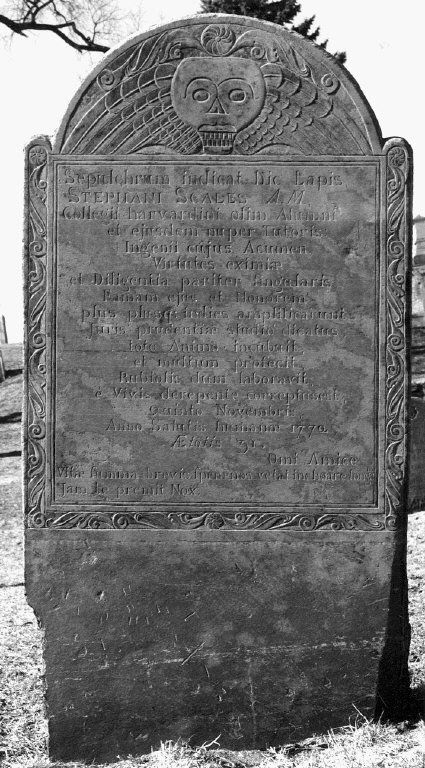 Sepulchrum indicat hic Lapis
STEPHANI SCALES A.M.
Collegii harvardini olim Alumni
et ejusdem nuper tutoris
Ingenii cujus Acumen
Virtutes eximiæ
et Diligentia pariter singularis
Famam ejus et Honorem
plus plusq; indies amplificarunt
Juris prudentiæ studio dicatus
toto Animo incubuit
et multum profecit
Rubiolis dum laboravit
e Vivis derepente correptus est
Quinto Novembris
Anno Salutis humanæ 1772
Ætatis 31
Omi Amice
Vitæ summa brevis spem nos vetat inchoare longam
Jam te premit Nox